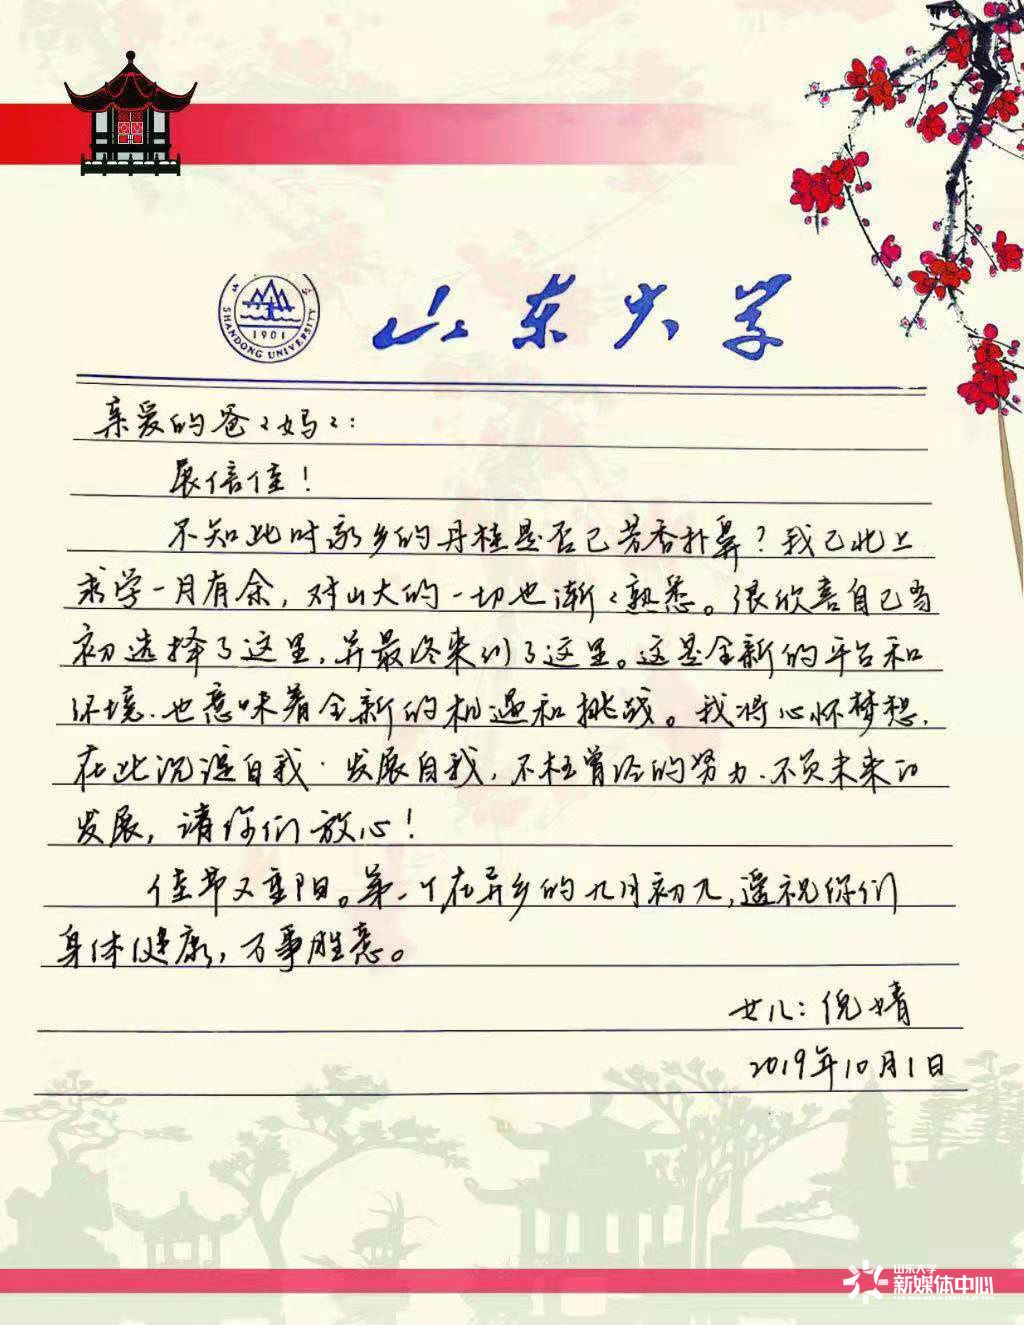 SHANDONG UNIVERSITY
1901
山东大学
亲爱的爸〻妈〻：
展信佳！
不知此时家乡的丹桂是否已芳香扑鼻？我已北上
求学一月有余，对山大的一切也渐〻熟悉。很欣喜自己当
初选择了这里，并最终来到了这里。这是全新的平台和
环境，也意味着全新的机遇和挑战。我将心怀梦想，
在此沉淀自我，发展自我，不枉曾经的努力，不负未来的
发展，请你们放心！
佳节又重阳。第一个在异乡的九月初九，遥祝你们
身体健康，万事胜意。
女儿：倪婧
2019年10月1日
山东大学
新媒体中心